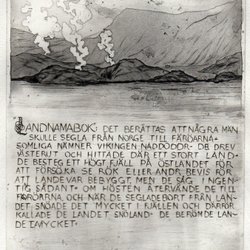 LANDNAMABOK: DET BERÄTTAS ATT NÅGRA MÄN
SKULLE SEGLA FRÅN NORGE TILL FÄRÖARNA.
SOMLIGA NÄMNER VIKINGEN NADDODDR. DE DREV
VÄSTERUT OCH HITTADE DÄR ETT STORT LAND.
DE BESTEG ETT HÖGT FJÄLL PÅ ÖSTLANDET FÖR
ATT FÖRSÖKA SE RÖK ELLER ANDR BEVIS FÖR
ATT LANDE VAR BEBYGGT MEN DE SÅG INGEN-
TIG SÅDANT. OM HÖSTEN ÅTERVÄNDE DE TILL
FÄRÖARNA OCH NÄR DE SEGLADE BORT FRÅN LAN-
DET, SNÖADE DET MYCKET I FJÄLLEN OCH DÄRFÖR
KALLADE DE LANDET SNÖLAND. DE BERÖMDE LAN-
DET MYCKET.